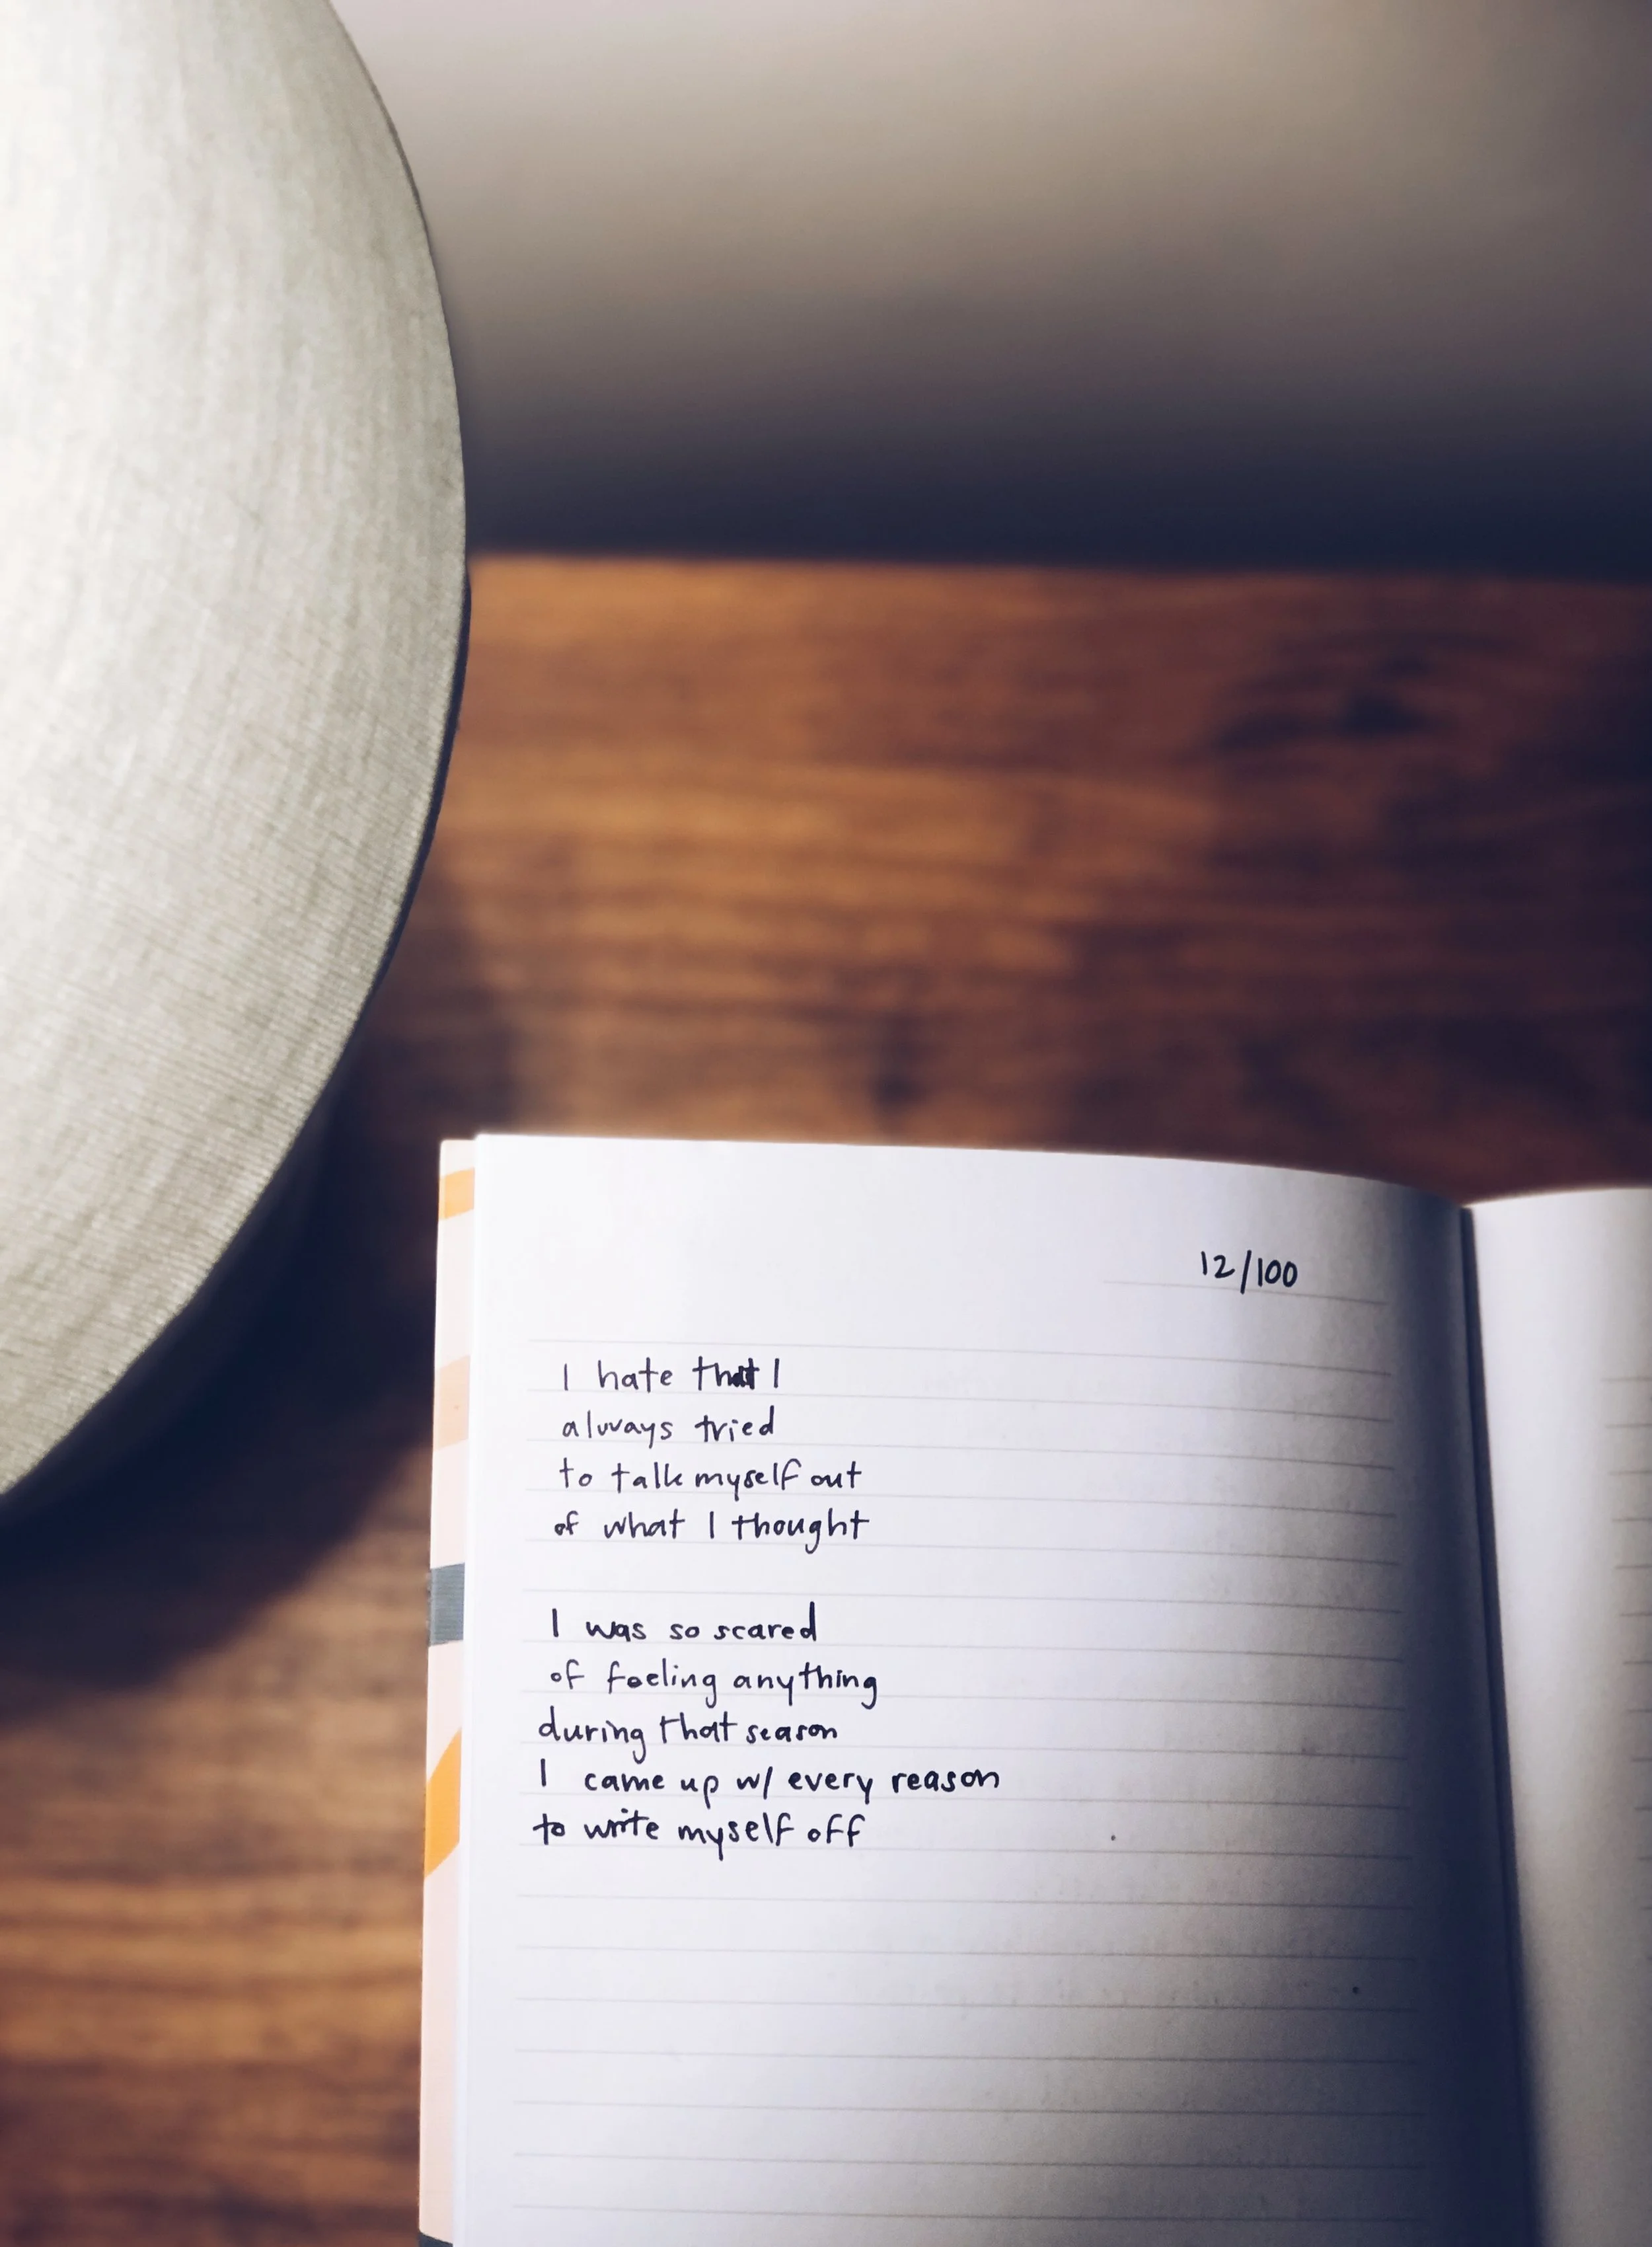 12/100
I hate that I
always tried
to talk myself out
of what I thought
I was so scared
of feeling anything
during that season
I came up w/ every reason
to write myself off